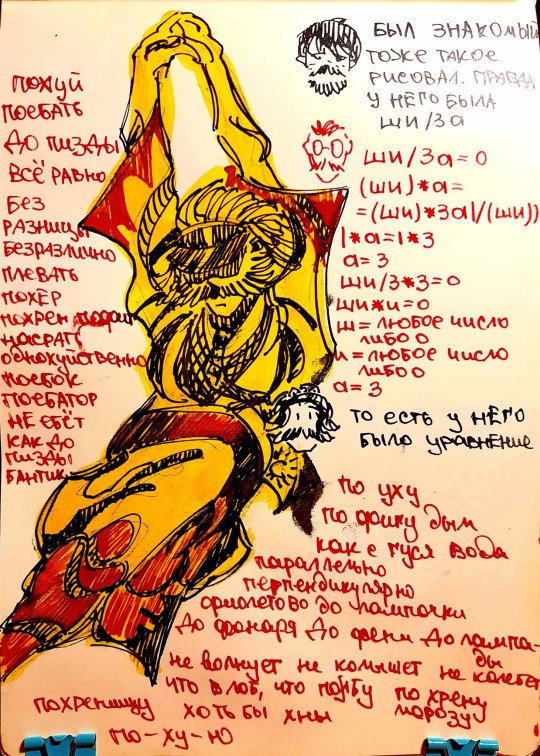 ПОХУЙ
ПОЕБАТЬ
ДО ПИЗДЫ
ВСЁ РАВНО
БЕЗ
РАЗНИЦЫ
БЕЗРАЗЛИЧНО
ПЛЕВАТЬ
ПОХЕР
ПОХРЕН
НАСРАТЬ
ОДНОХУЙСТВЕННО
ПОЕБОК
ПОЕБАТОР
НЕ ЕБЁТ
КАК ДО
ПИЗДЫ
БАНТИК
БЫЛ ЗНАКОМЫЙ
ТОЖЕ ТАКОЕ
РИСОВАЛ. ПРАВДА
У НЕГО БЫЛА
ШИ/ЗА
ШИ/ЗА=0
(ШИ)*А=
=(ШИ)*3А/(ШИ))
1*А=1*3
А=3
ШИ/3*3=0
Ш*И=0
Ш=ЛЮБОЕ ЧИСЛО
ЛИБО 0
И=ЛЮБОЕ ЧИСЛО
ЛИБО 0
А=3
ТО ЕСТЬ У НЕГО
БЫЛО УРАВНЕНИЕ
ПО УХУ
ПО ФИГУ ДЫМ
КАК С ГУСЯ ВОДА
ПАРАЛЛЕЛЬНО
ПЕРПЕНДИКУЛЯРНО
ФИОЛЕТОВО ДО ЛАМПОЧКИ
ДО ФОНАРЯ ДО ФЕНИ ДО ЛАМПА-
ДЫ
НЕ ВОЛНУЕТ НЕ КОЛЫШЕТ НЕ КОЛЕБЕТ
ЧТО В ЛОБ, ЧТО ПО ЛБУ ПО ХРЕНУ
МОРОЗУ
ПОХРЕНИЩУ ХОТЬ БЫ ХНЫ
ПО-ХУ-НО